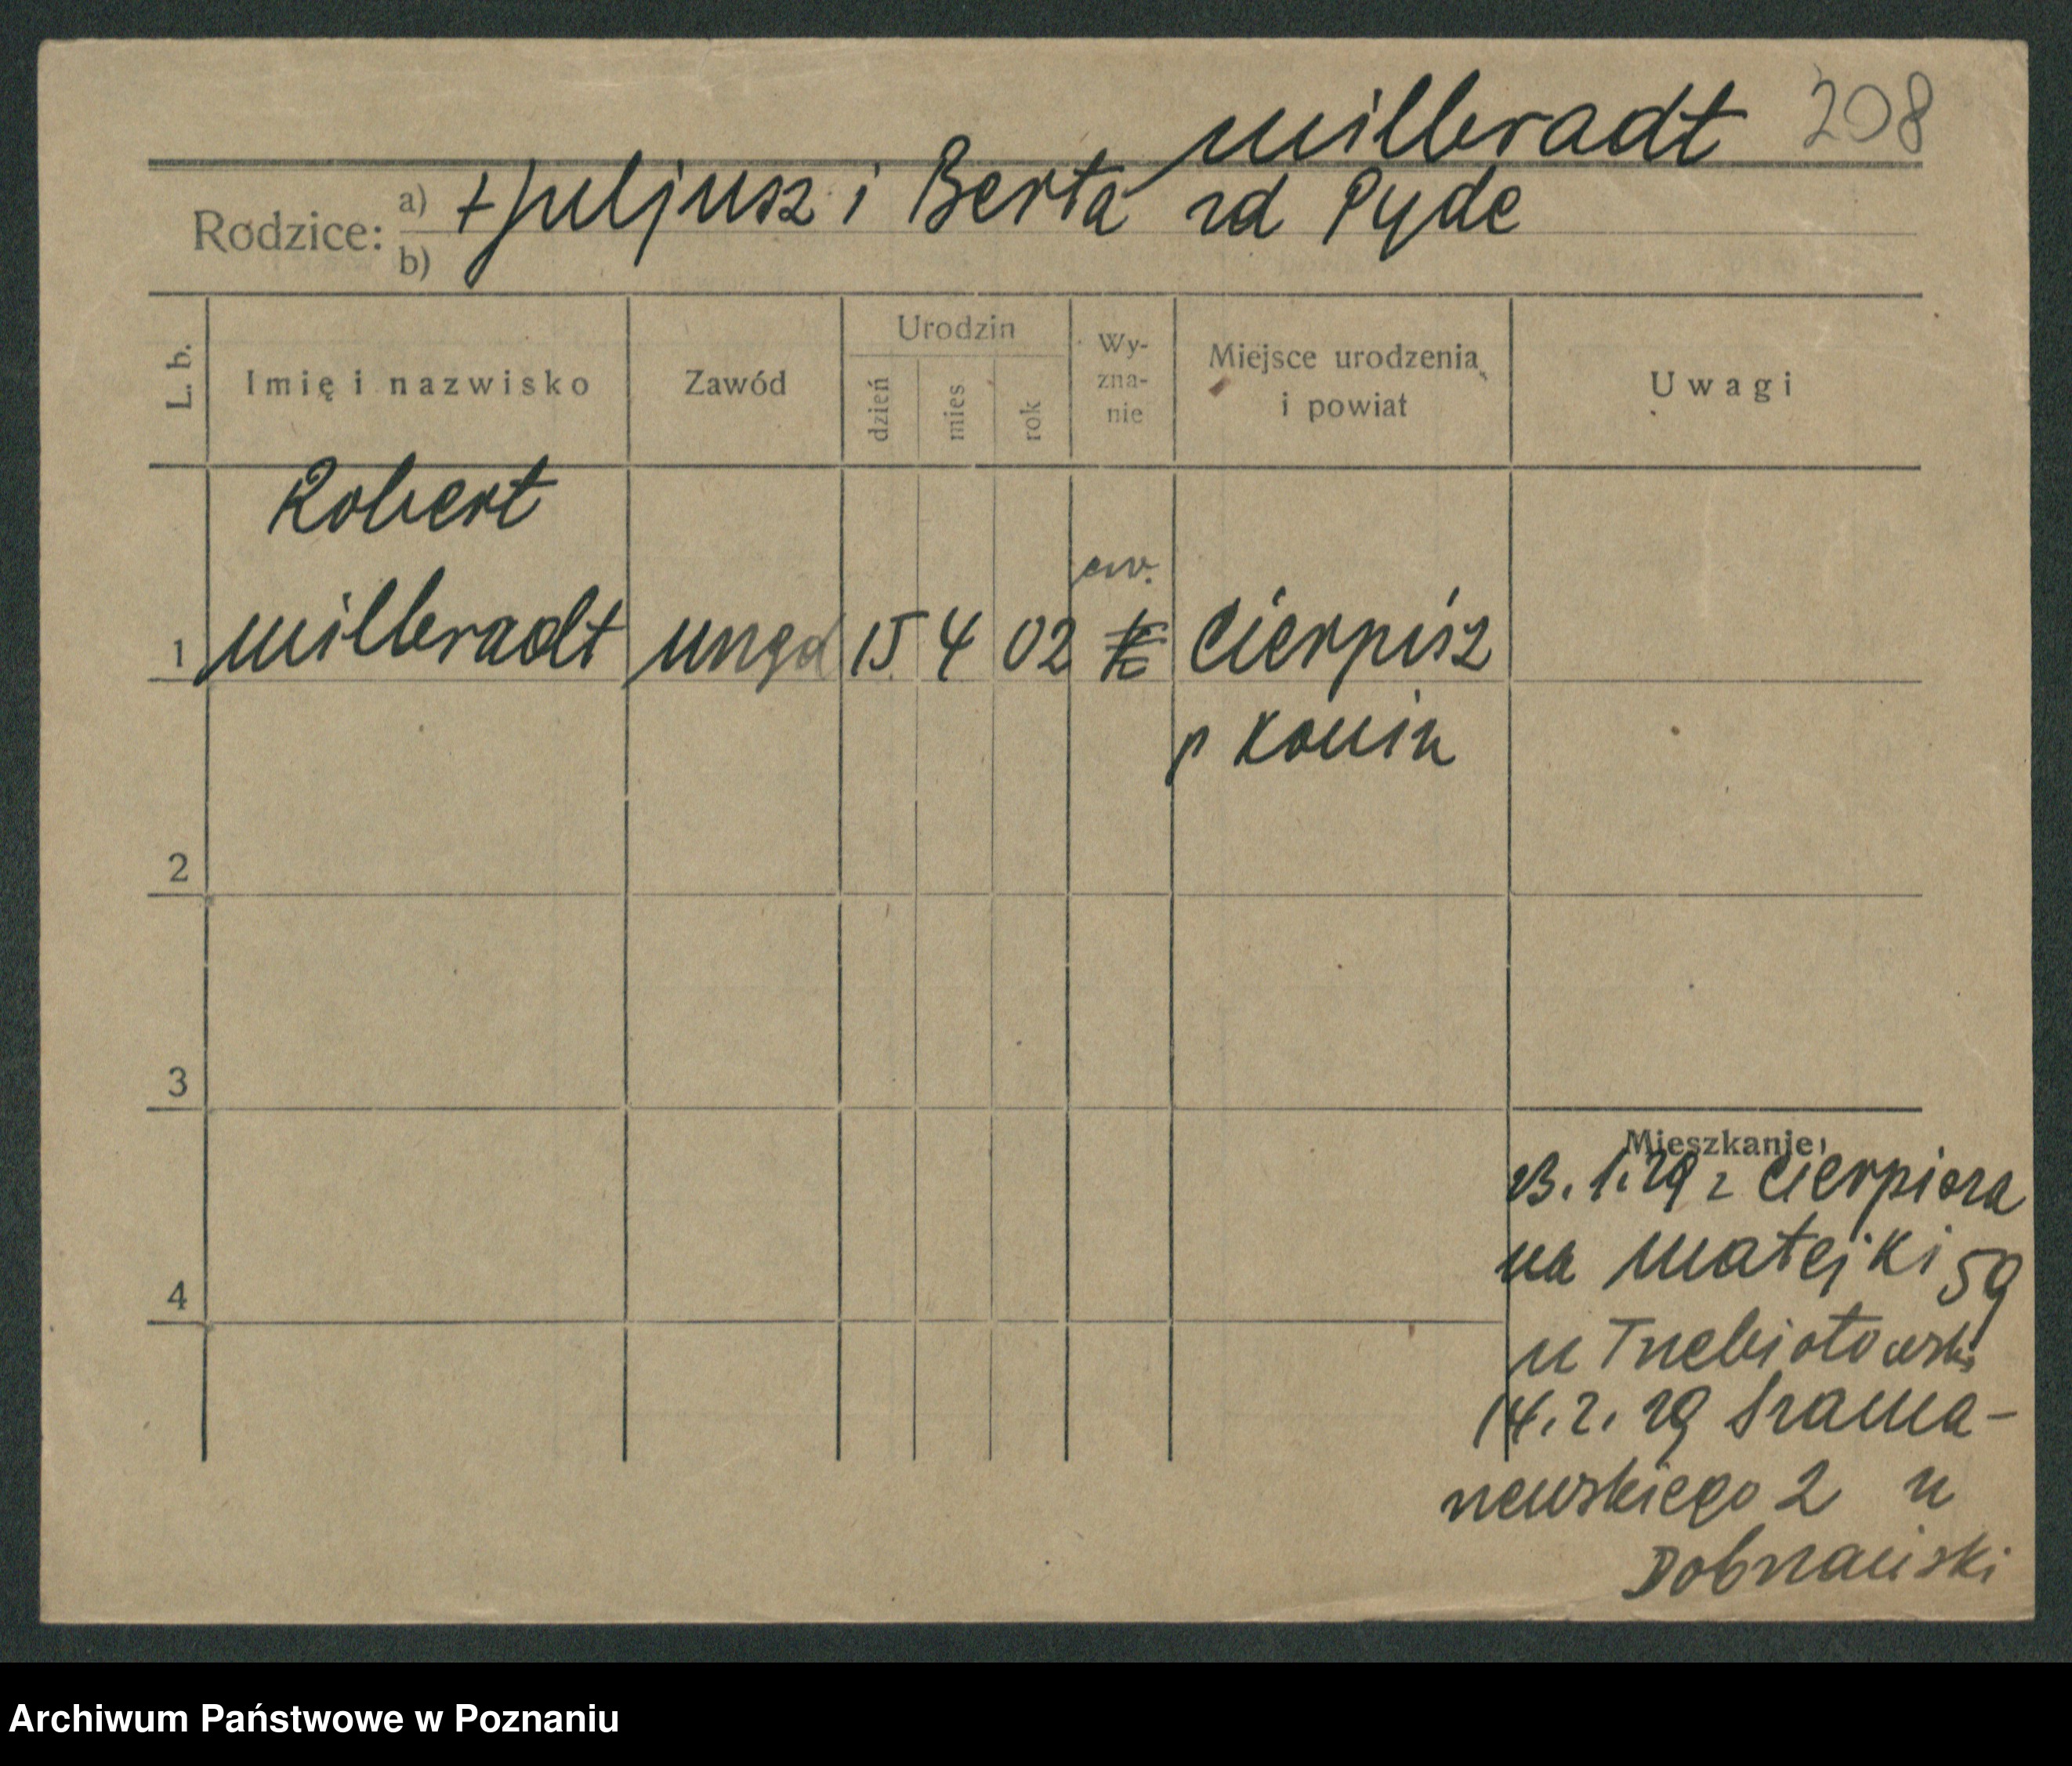 milbradt 208
Rodzice: a) + Juljusz i Berta zd Pyde
b)
L. b. Imię i nazwisko Zawód Urodzin dzień mies rok Wy-zna-nie Miejsce urodzenia i powiat Uwagi
Robert
ew.
1 milbradt 15 4 02 Cierpisz
p Konin
2
3
Mieszkanie:
23.1.29 z Cierpisza
na Matejki 59
4
u
14.2.29 Szama-
rzewskiego 2 u
Dobrzański
Archiwum Państwowe w Poznaniu